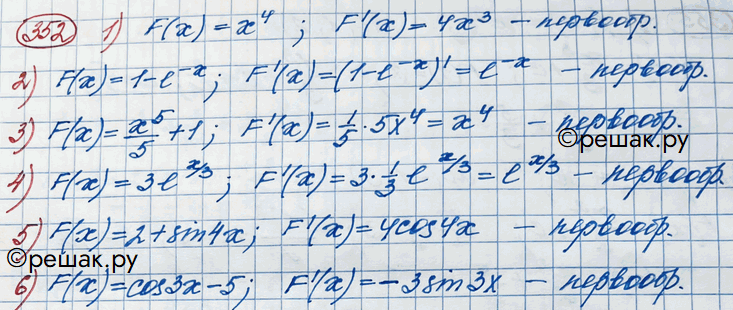 352 1) F(x) = x⁴ ; F'(x) = 4x³ – первообр.
2) F(x) = 1-e⁻ˣ; F'(x) = (1-e⁻ˣ)' = e⁻ˣ – первообр.
3) F(x) = x⁵/5 + 1; F'(x) = 1/5 · 5x⁴ = x⁴ – первообр.
©решак.ру
4) F(x) = 3e^(x/3); F'(x) = 3 · 1/3 e^(x/3) = e^(x/3) – первообр.
5) F(x) = 2 + sin4x; F'(x) = 4cos4x – первообр.
©решак.ру
6) F(x) = cos3x - 5; F'(x) = -3sin3x – первообр.